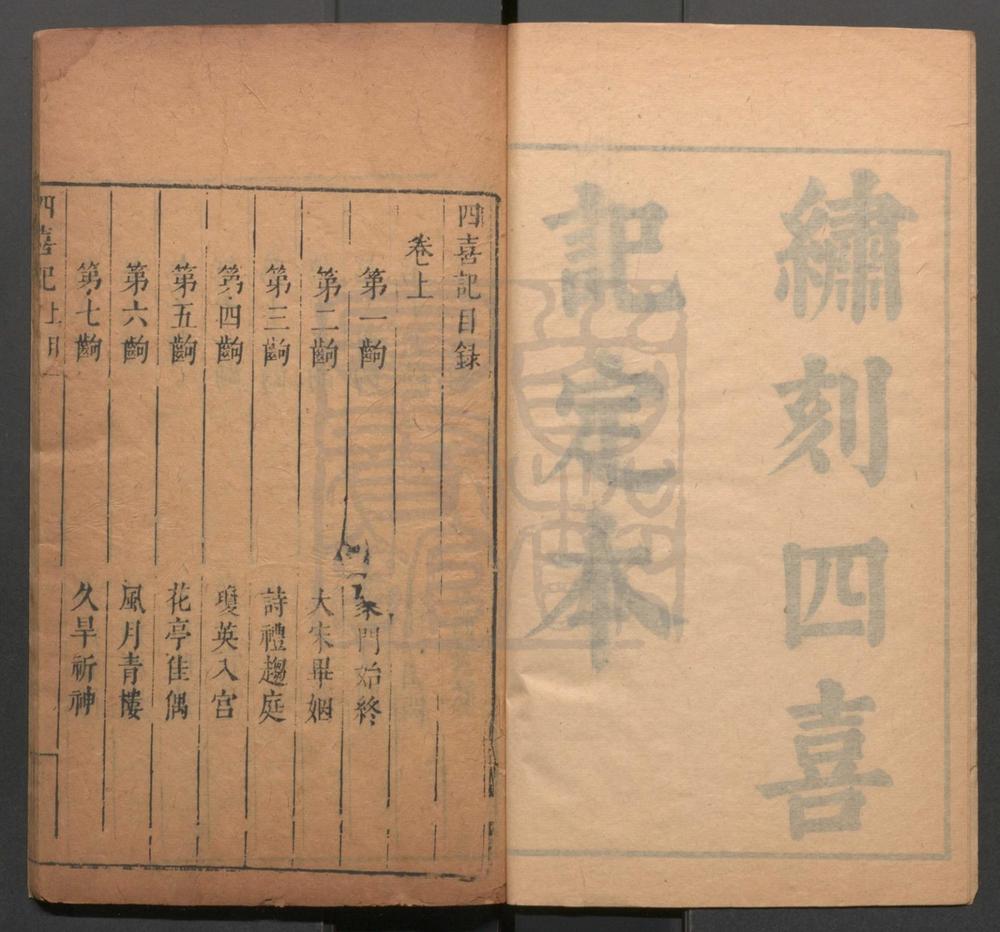 繡刻四喜
記定本
四喜記目錄
卷上
第一齣 家門始終
第二齣 大宋畢姻
第三齣 詩禮趨庭
第四齣 瓊英入宮
第五齣 花亭佳偶
第六齣 風月青樓
第七齣 久旱祈神
四喜記 上目 一